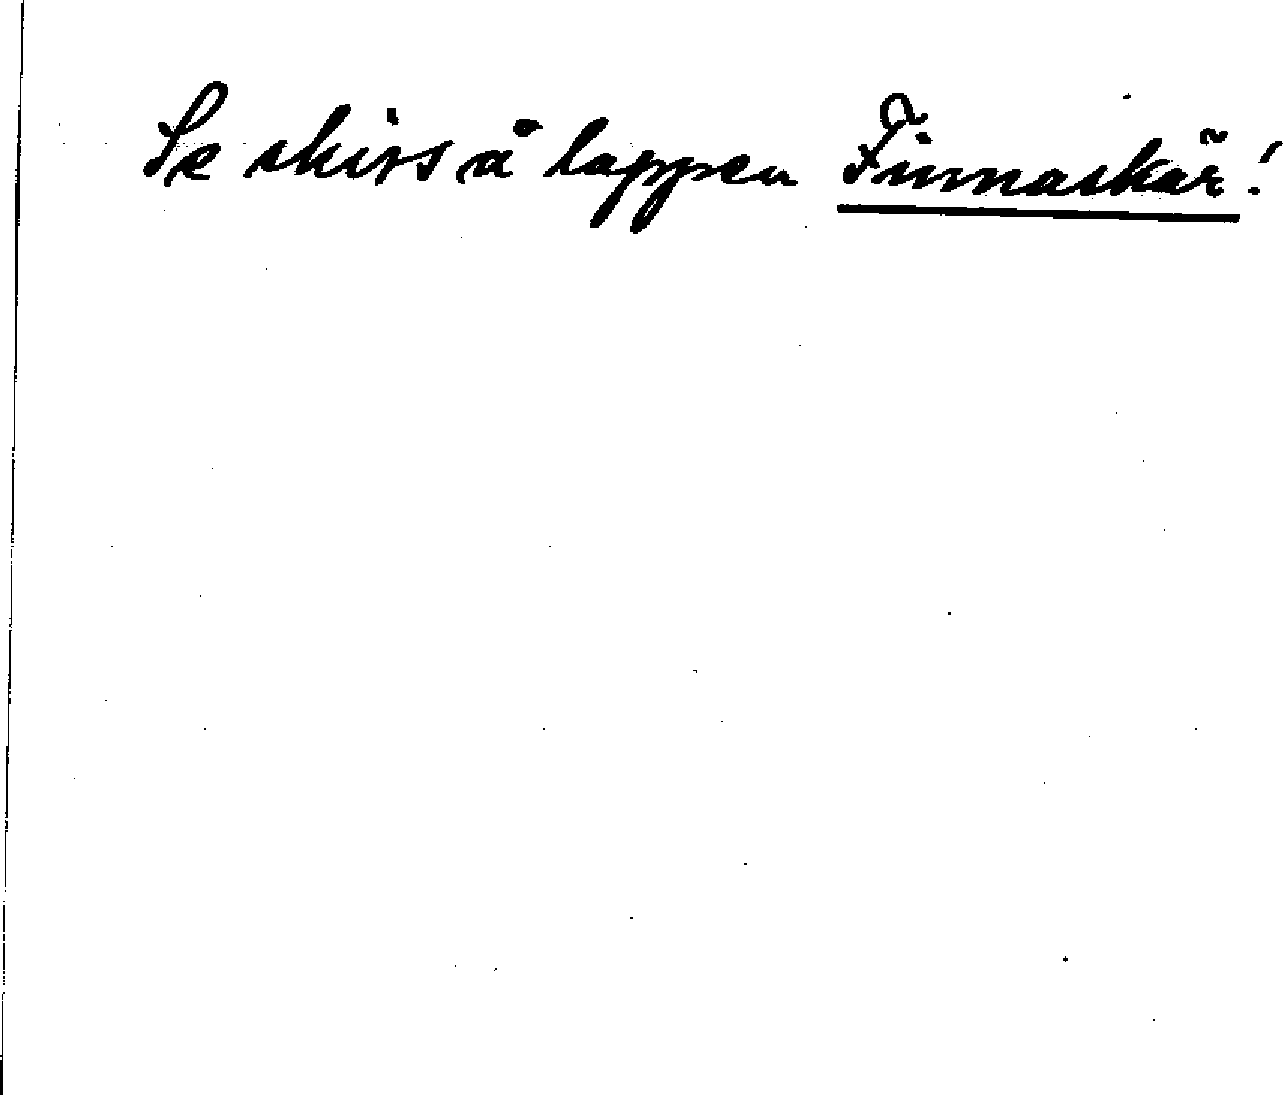 Se skiss å lappen Finnaskär!